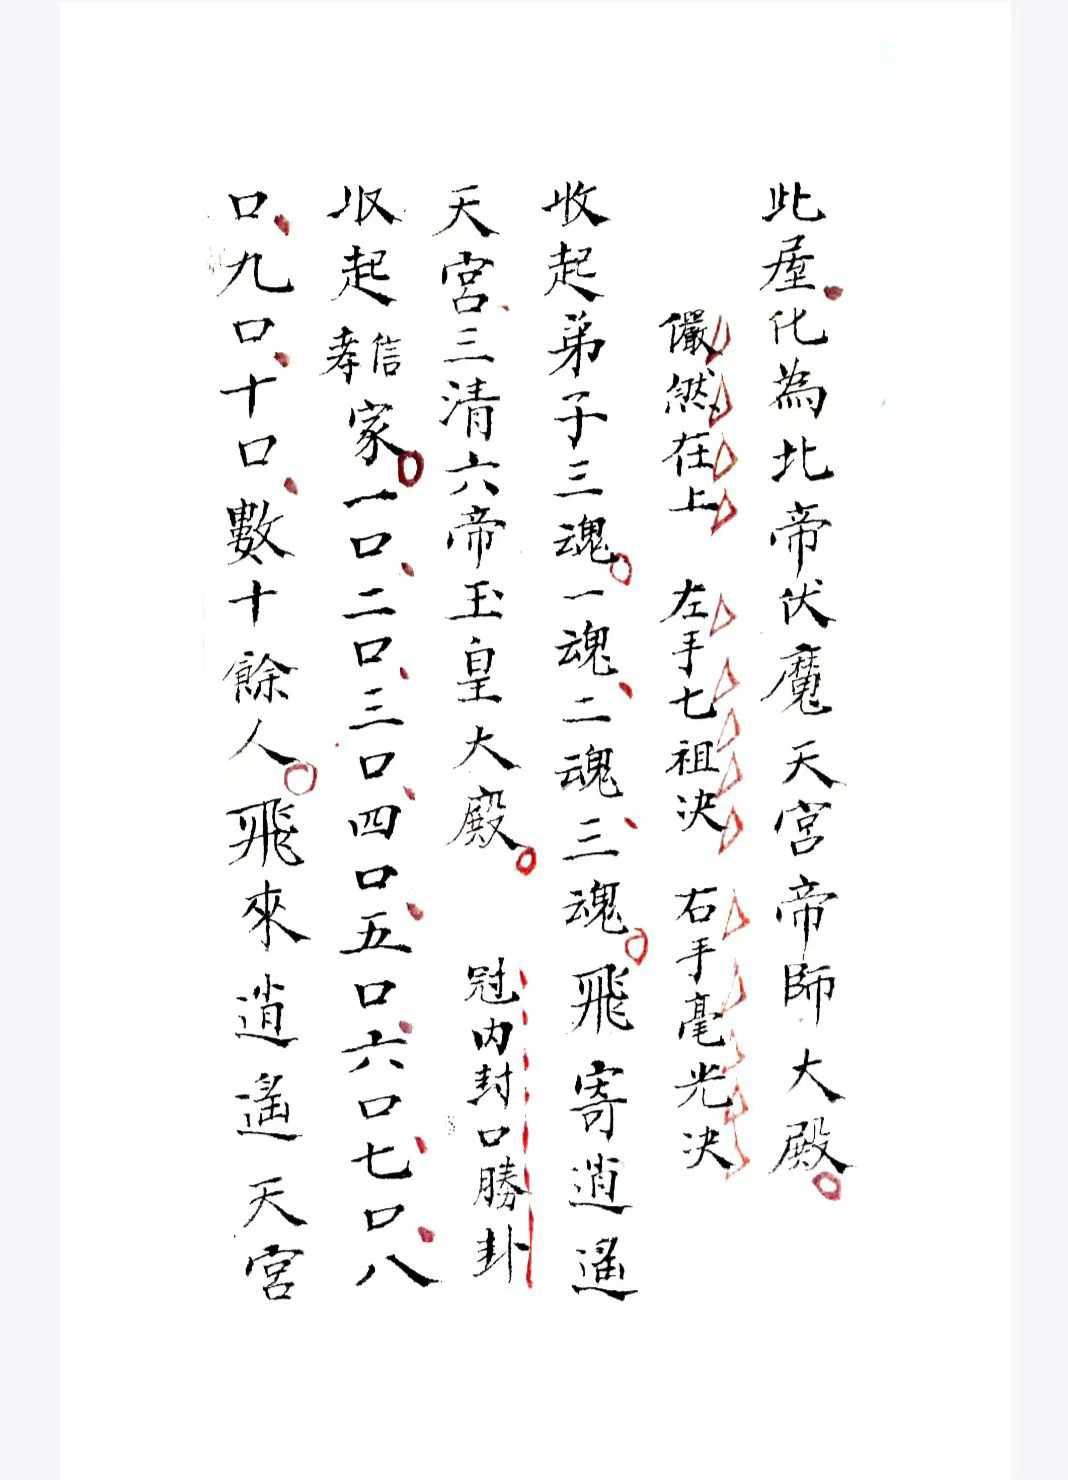 此屋化為北帝伏魔天宮帝師大殿
儼然在上 左手七祖决 右手毫光决
收起弟子三魂一魂二魂三魂飛寄逍遥
天宮三清六帝玉皇大殿 冠内封口勝卦
收起孝信家一口二口三口四口五口六口七口八
口九口十口數十餘人飛來逍遥天宮